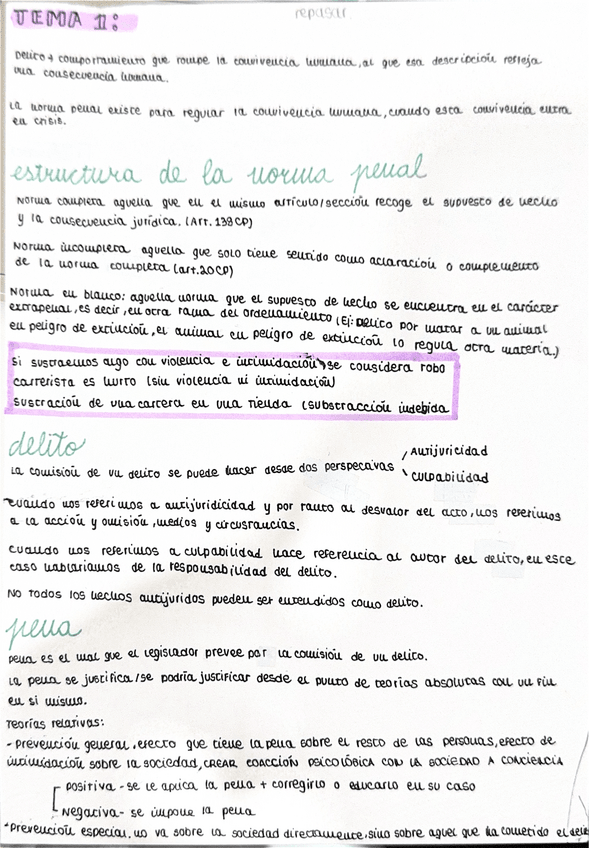 TEMA 1:
repasar.
Delito → comportamiento que rompe la convivencia humana, al que esa descripción refleja
una consecuencia humana.
La norma penal existe para regular la convivencia humana, cuando esta convivencia entra
en crisis.
estructura de la norma penal
Norma completa aquella que en el mismo artículo/sección recoge el supuesto de hecho
y la consecuencia jurídica. (Art. 138 CP)
Norma incompleta aquella que solo tiene sentido como aclaración o complemento
de la norma completa (art. 20 CP)
Norma en blanco: aquella norma que el supuesto de hecho se encuentra en el carácter
extrapenal, es decir, en otra rama del ordenamiento (Ej: Delito por matar a un animal
en peligro de extinción, el animal en peligro de extinción lo regula otra materia.)
Si sustraemos algo con violencia e intimidación → se considera robo
carterista es hurto (sin violencia ni intimidación)
sustración de una cartera en una tienda (substracción indebida
delito
La comisión de un delito se puede hacer desde dos perspecivas
Antijuricidad
culpabilidad
Cuando nos referimos a antijuridicidad y por tanto al desvalor del acto, nos referimos
a la acción y omisión, medios y circusnancias.
Cuando nos referimos a culpabilidad hace referencia al autor del delito, en este
caso hablariamos de la responsabilidad del delito.
No todos los hechos antijuridos pueden ser entendidos como delito.
pena
pena es el mal que el legislador prevee por la comisión de un delito.
La pena se justifica/se podría justificar desde el punto de teorías absolutas con un fin
en si mismo.
Teorías relativas:
- Prevención general, efecto que tiene la pena sobre el resto de las personas, efecto de
intimidación sobre la sociedad, CREAR COACCIÓN PSICOLÓGICA CON LA SOCIEDAD A CONCIENCIA
positiva - se le aplica la pena + corregirlo o educarlo en su caso
Negativa - se impone la pena
*Prevención especial, no va sobre la sociedad directamente, sino sobre aquel que ha cometido el